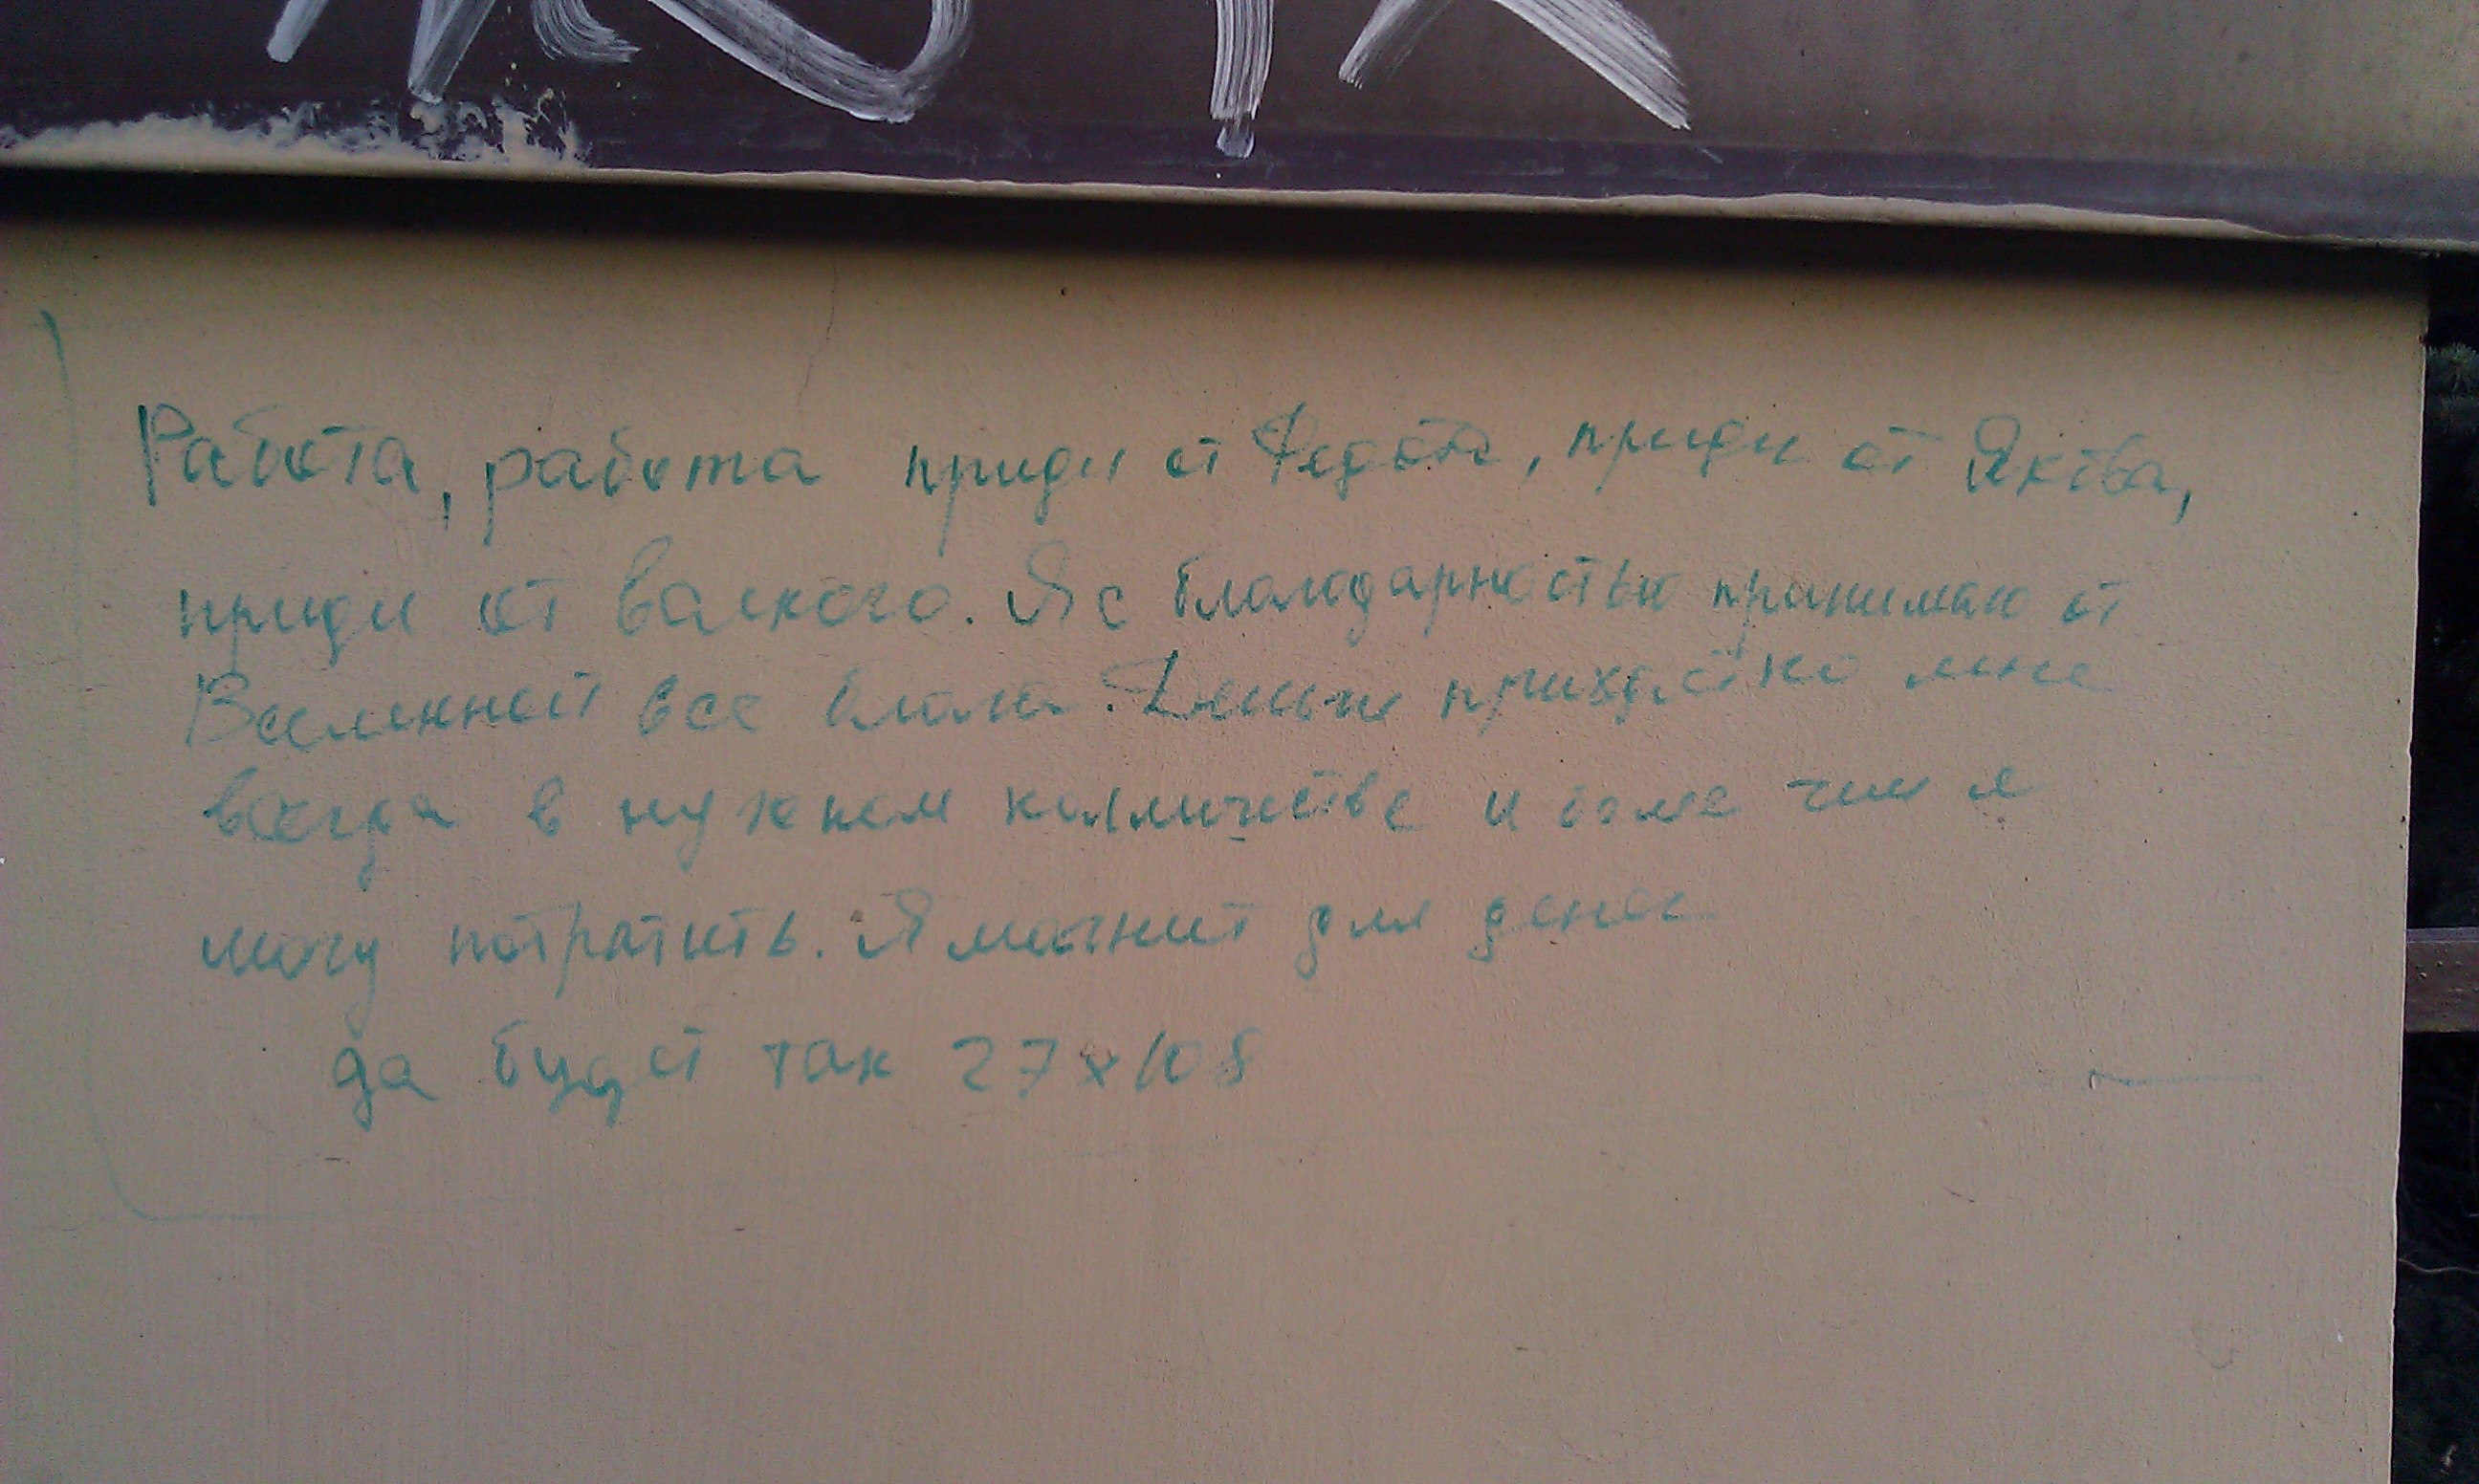 Работа, работа приди от Федота, приди от Якова,
приди от всякого. Я с благодарностью принимаю от
Вселенной все блага. Деньги приходят ко мне
всегда в нужном колличестве и более чем я
могу потратить. Я магнит для денег
да будет так 27x10